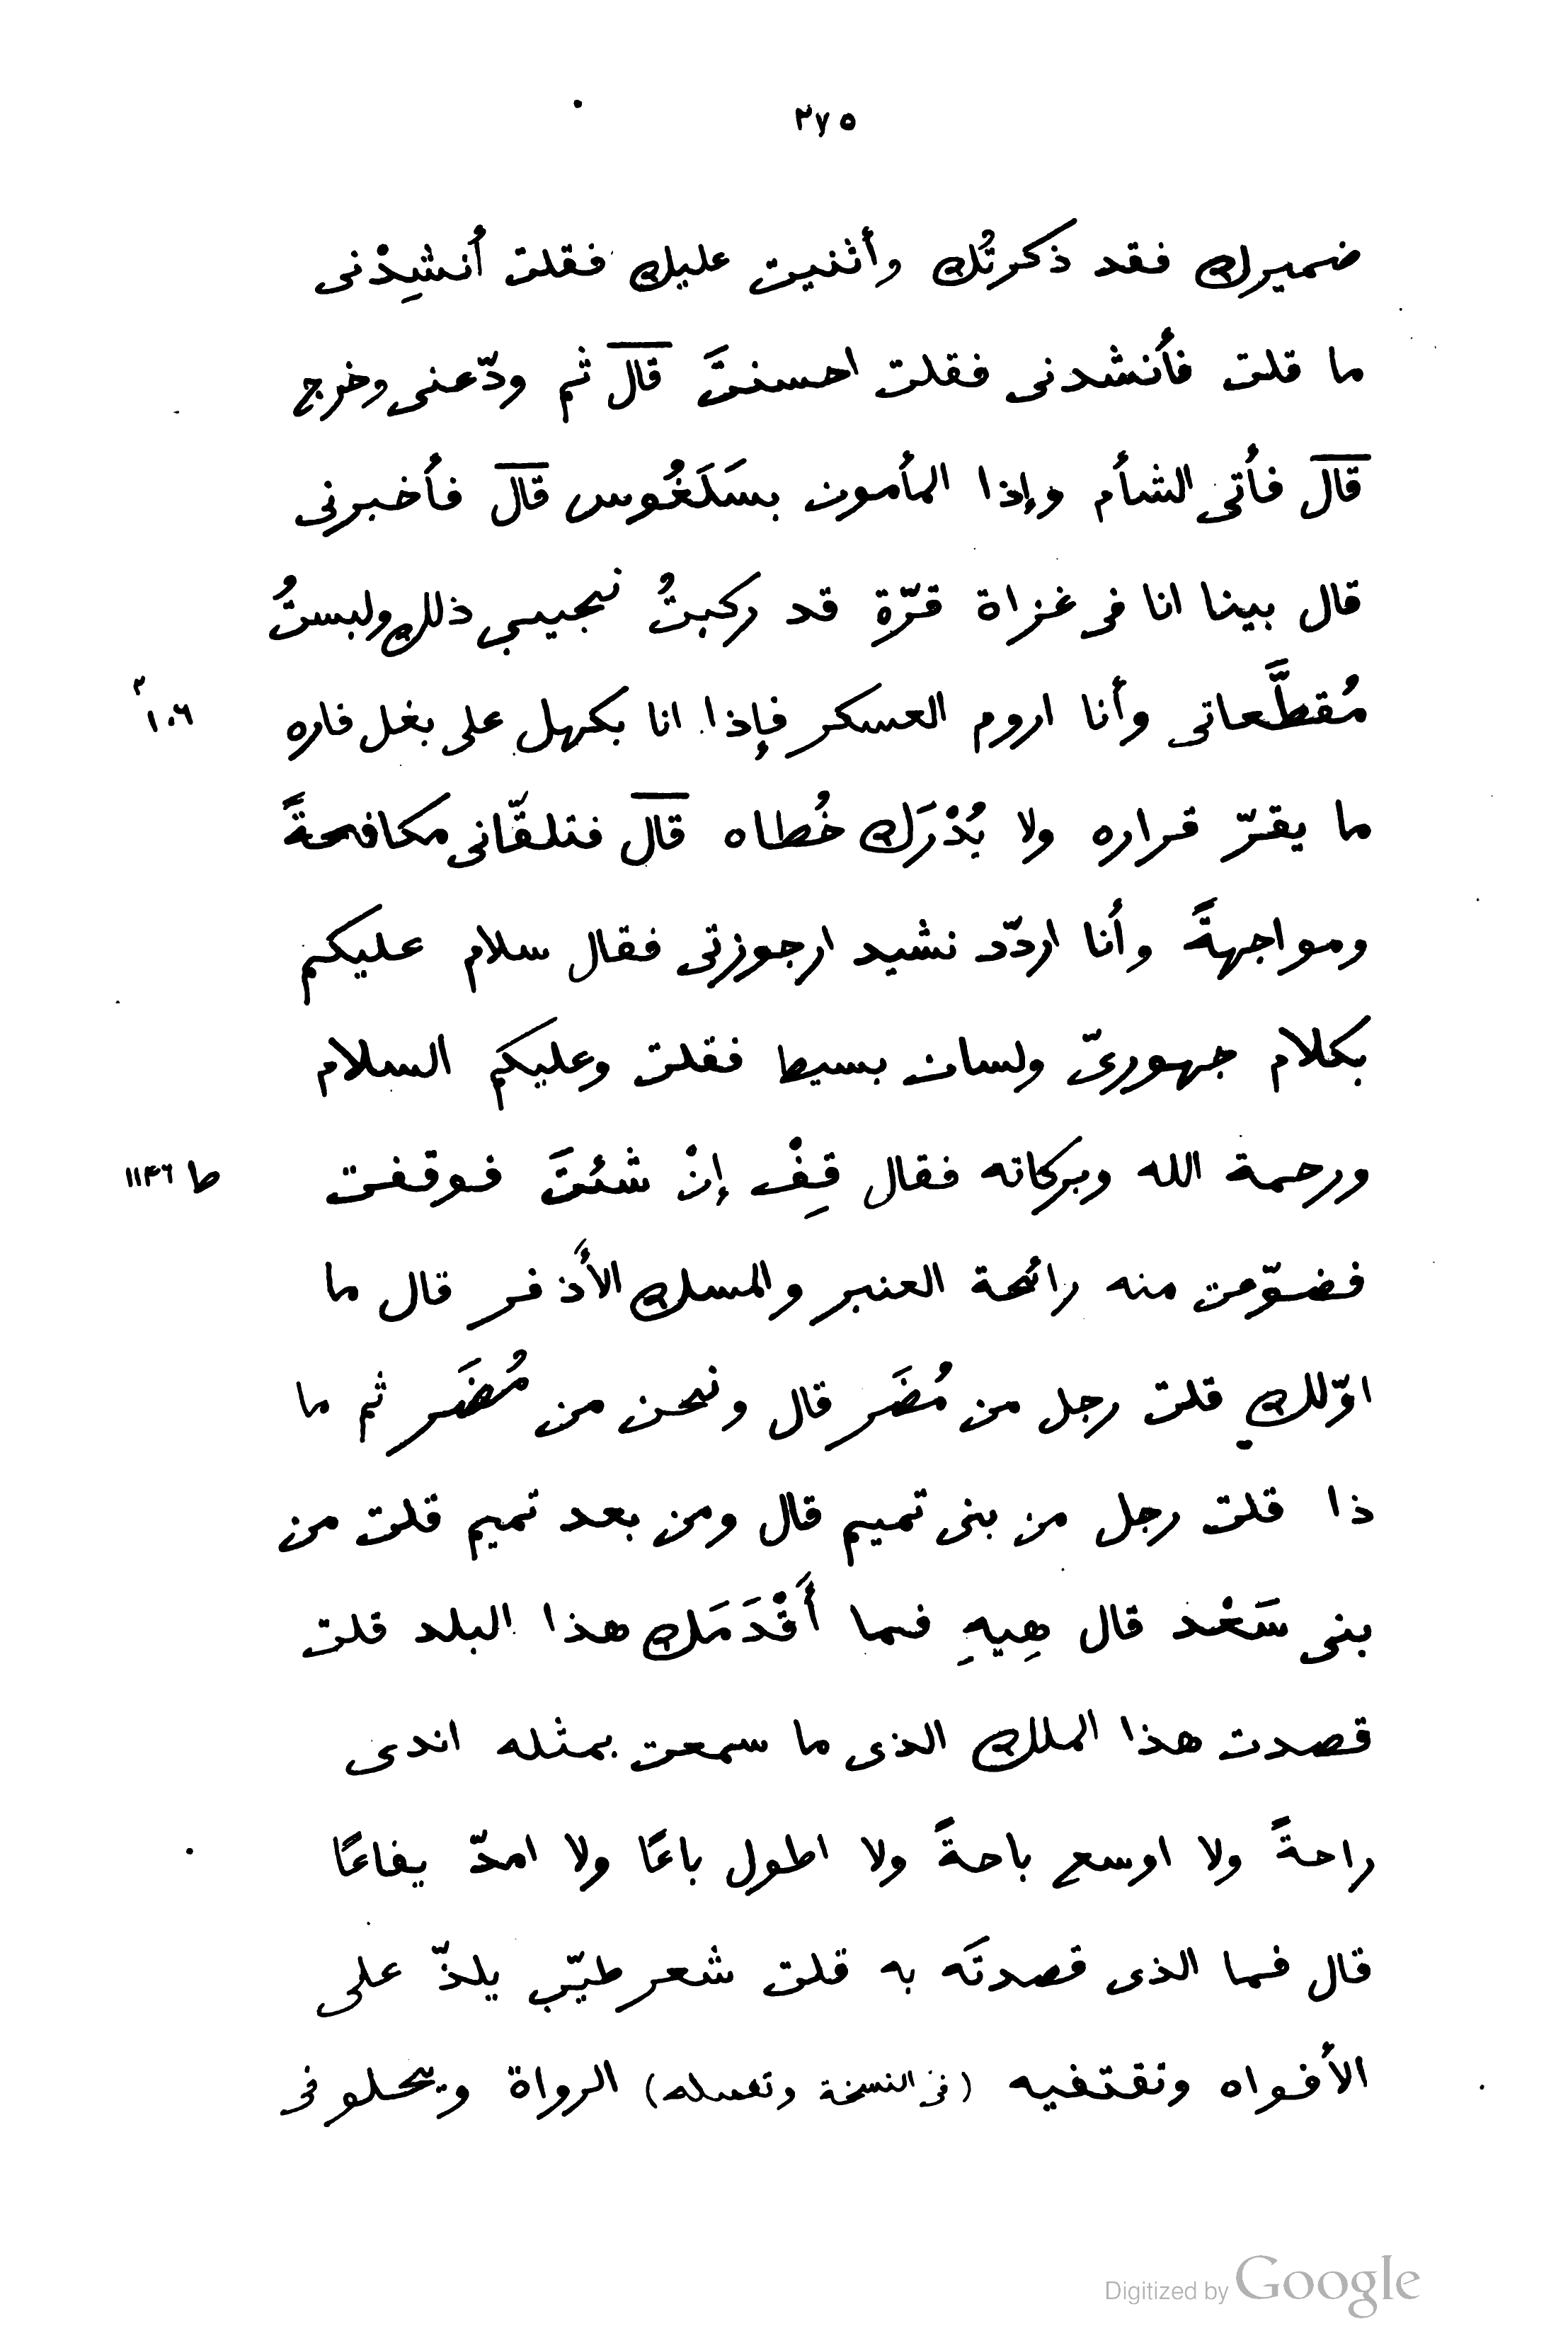 ٢٧٥
ضميرك فقد ذكرتُك وأثنيت عليك فقلت أنشِدْنى
ما قلت فأنشدنى فقلت احسنتَ قال ثم ودّعنى وخرج
قال فأتى الشأم وإذا المأمون بسَلَغُوس قال فأخبرنى
قال بينا انا فى غزاة قرّةٍ قد ركبتُ نجيبى ذلك ولبستُ
مُقطَّعاتى وأنا اروم العسكر فإذا انا بكهل على بغل فاره
١٠٦ ٢
ما يقرّ قراره ولا يُدْرَك خُطاه قال فتلقّانى مكافحةً
ومواجهةً وأنا اردّد نشيد ارجوزتى فقال سلام عليكم
بكلام جهورىّ ولسان بسيط فقلت وعليكم السلام
ورحمة الله وبركاته فقال قِفْ إنْ شئتَ فوقفت
ط ١١٤٦
فضوّعت منه رائحة العنبر والمسك الأَذفر قال ما
اوّلك قلت رجل من مُضَر قال ونحن من مُضَر ثم ما
ذا قلت رجل من بنى تميم قال ومن بعد تميم قلت من
بنى سَعْد قال هِيهِ فما أَقْدَمَك هذا البلد قلت
قصدت هذا الملك الذى ما سمعت بمثله اندى
راحةً ولا اوسع باحةً ولا اطول باعًا ولا امدّ يفاعًا
قال فما الذى قصدتَه به قلت شعر طيّب يلذّ على
الأفواه وتقتفيه (فى النسخة وتعسله) الرواة ويحلو فى
Digitized by Google